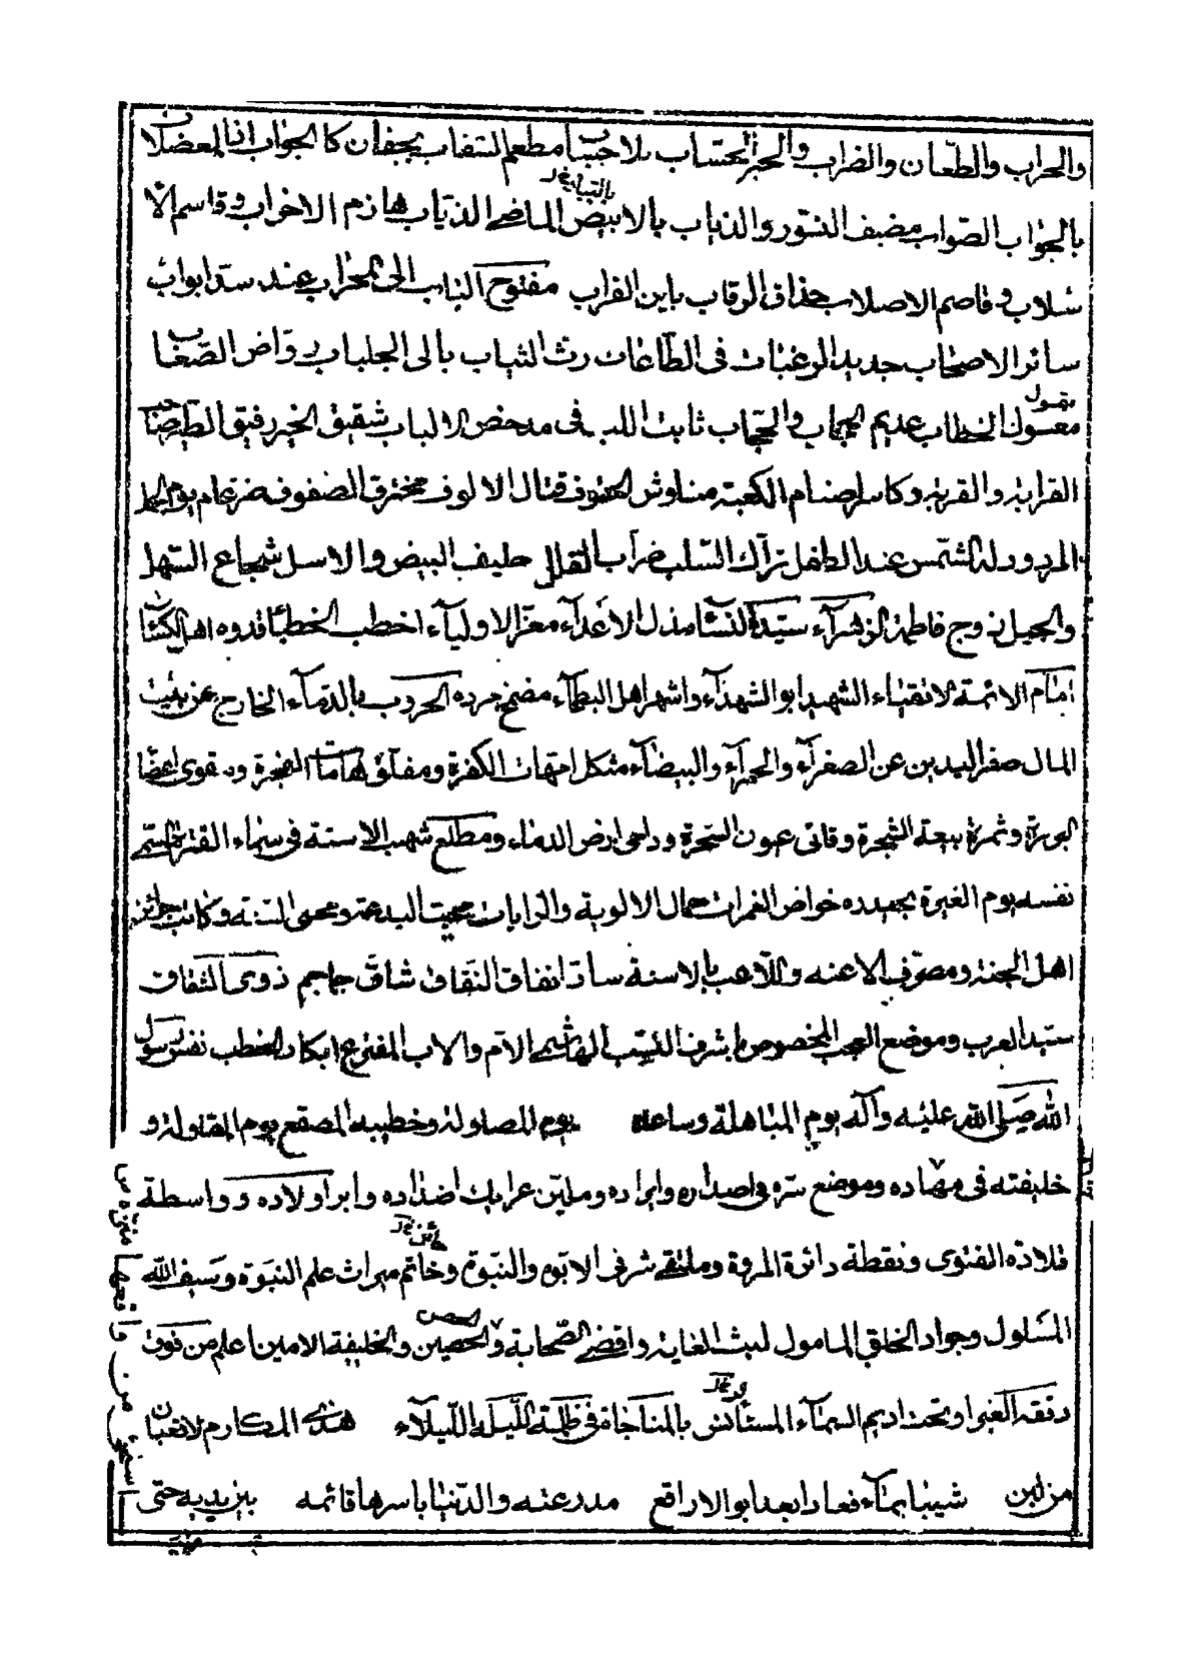 والحراب والطعان والضراب والخير الحساب بلا حساب مطعم السغاب بجفان كالجواب انا المعضلات
بالجواب الصواب مضيف النسور والذئاب بالابيض الماضي الذباب هازم الاحزاب وقاسم الا
سلاب وقاصم الاصلاب جذاق الرقاب باين القراب مفتوح الباب الى المحراب عند سد ابواب
سائر الاصحاب جديد الرغبات في الطاعات رث الثياب بالى الجلباب رواض الصعاب
معسول الخطاب عديم الحجاب والحجاب ثابت اللب في مدحض الالباب شقيق الخير رفيق الطير صاحب
القرابة والقربة وكاسر اصنام الكعبة مناوش الحتوف قتال الالوف مخترق الصفوف ضرغام يوم الجمل
المردود له الشمس عند الطفل تراك السلب ضراب القلل حليف البيض والاسل شجاع السهل
والجبل زوج فاطمة الزهراء سيدة النساء مذل الاعداء معز الاولياء اخطب الخطباء قدوه اهل الكساء
امام الائمة الاتقياء الشهيد ابو الشهداء واشهر اهل البطحاء مضمخ مرده الحروب بالدماء الخارج عن بيت
المال صفر اليدين عن الصفراء والحمراء والبيضاء مثكل امهات الكفرة ومفلق هامات الفجرة ومقوى اعضا
البررة وثمرة بيعة الشجرة وفاقئ عيون السحرة وداحى ارض الدماء ومطلع شهب الاسنة في سماء القترة المسمى
نفسه يوم الغبرة بحيدره خواض الغمرات حمال الالوية والرايات مميت البدعة ومحيى السنة وكاتب جوائز
اهل الجنة ومصرف الاعنه واللاعب بالاسنة ساد انفاق النفاق شاق جماجم ذوى الشقاق
سيد العرب وموضع العجب المخصوص باشرف النسب الهاشمي الام والاب المفترع ابكار الخطب نفس رسول
الله صلى الله عليه وآله يوم المباهلة وساعده يوم المصاولة وخطيبه المصقع يوم المقاولة و
خليفته في مهاده وموضع سره في اصداره وايراده وملين عرايك اضداده وابو اولاده وواسطة
قلادة الفتوى ونقطة دائرة المروة وملتقى شرفي الابوة والنبوة وخاتم ميراث علم النبوة وسيف الله
المسلول وجواد الخلق المامول ليث الغابة واقضى الصحابة والحصين والخليفة الامين اعلم من فوق
رقعه الغبرا وتحت اديم السماء المستانس بالمناجاة في ظلمة الليلة الليلاء هذى المكارم لا قعبان
من لبن شيبا بماء فعادا بعد ابوالا راقع مدرعته والدنيا باسرها قائمه بين يديه حتى